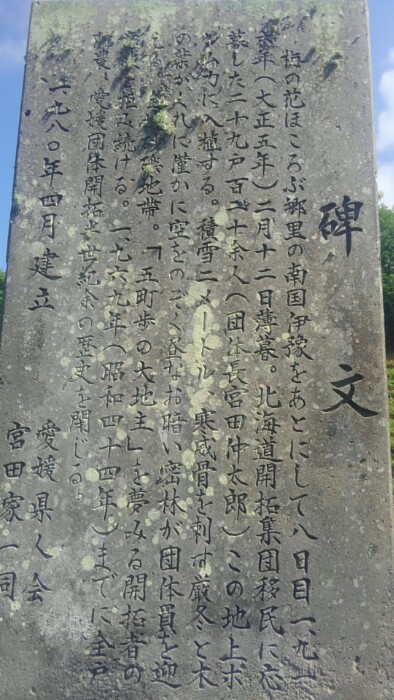 碑文
梅の花ほころぶ郷里の南国伊豫をあとにして八日目一、九一
六年(大正五年)二月十二日薄暮。北海道開拓集団移民に応
募した二十九戸百二十余人(団体長宮田仲太郎)この地上ホ
に入植する。積雪二メートル、寒威骨を刺す厳冬と木
の葉がくれに僅かに空をのぞく昼なお暗い密林が団体員を迎
地帯。「五町歩の大地主」を夢みる開拓者の
続ける。一、九六九年(昭和四十四年)までに全戸
愛媛団体開拓半世紀余の歴史を閉じる。
一九八〇年四月建立
愛媛県人会
宮田家一同